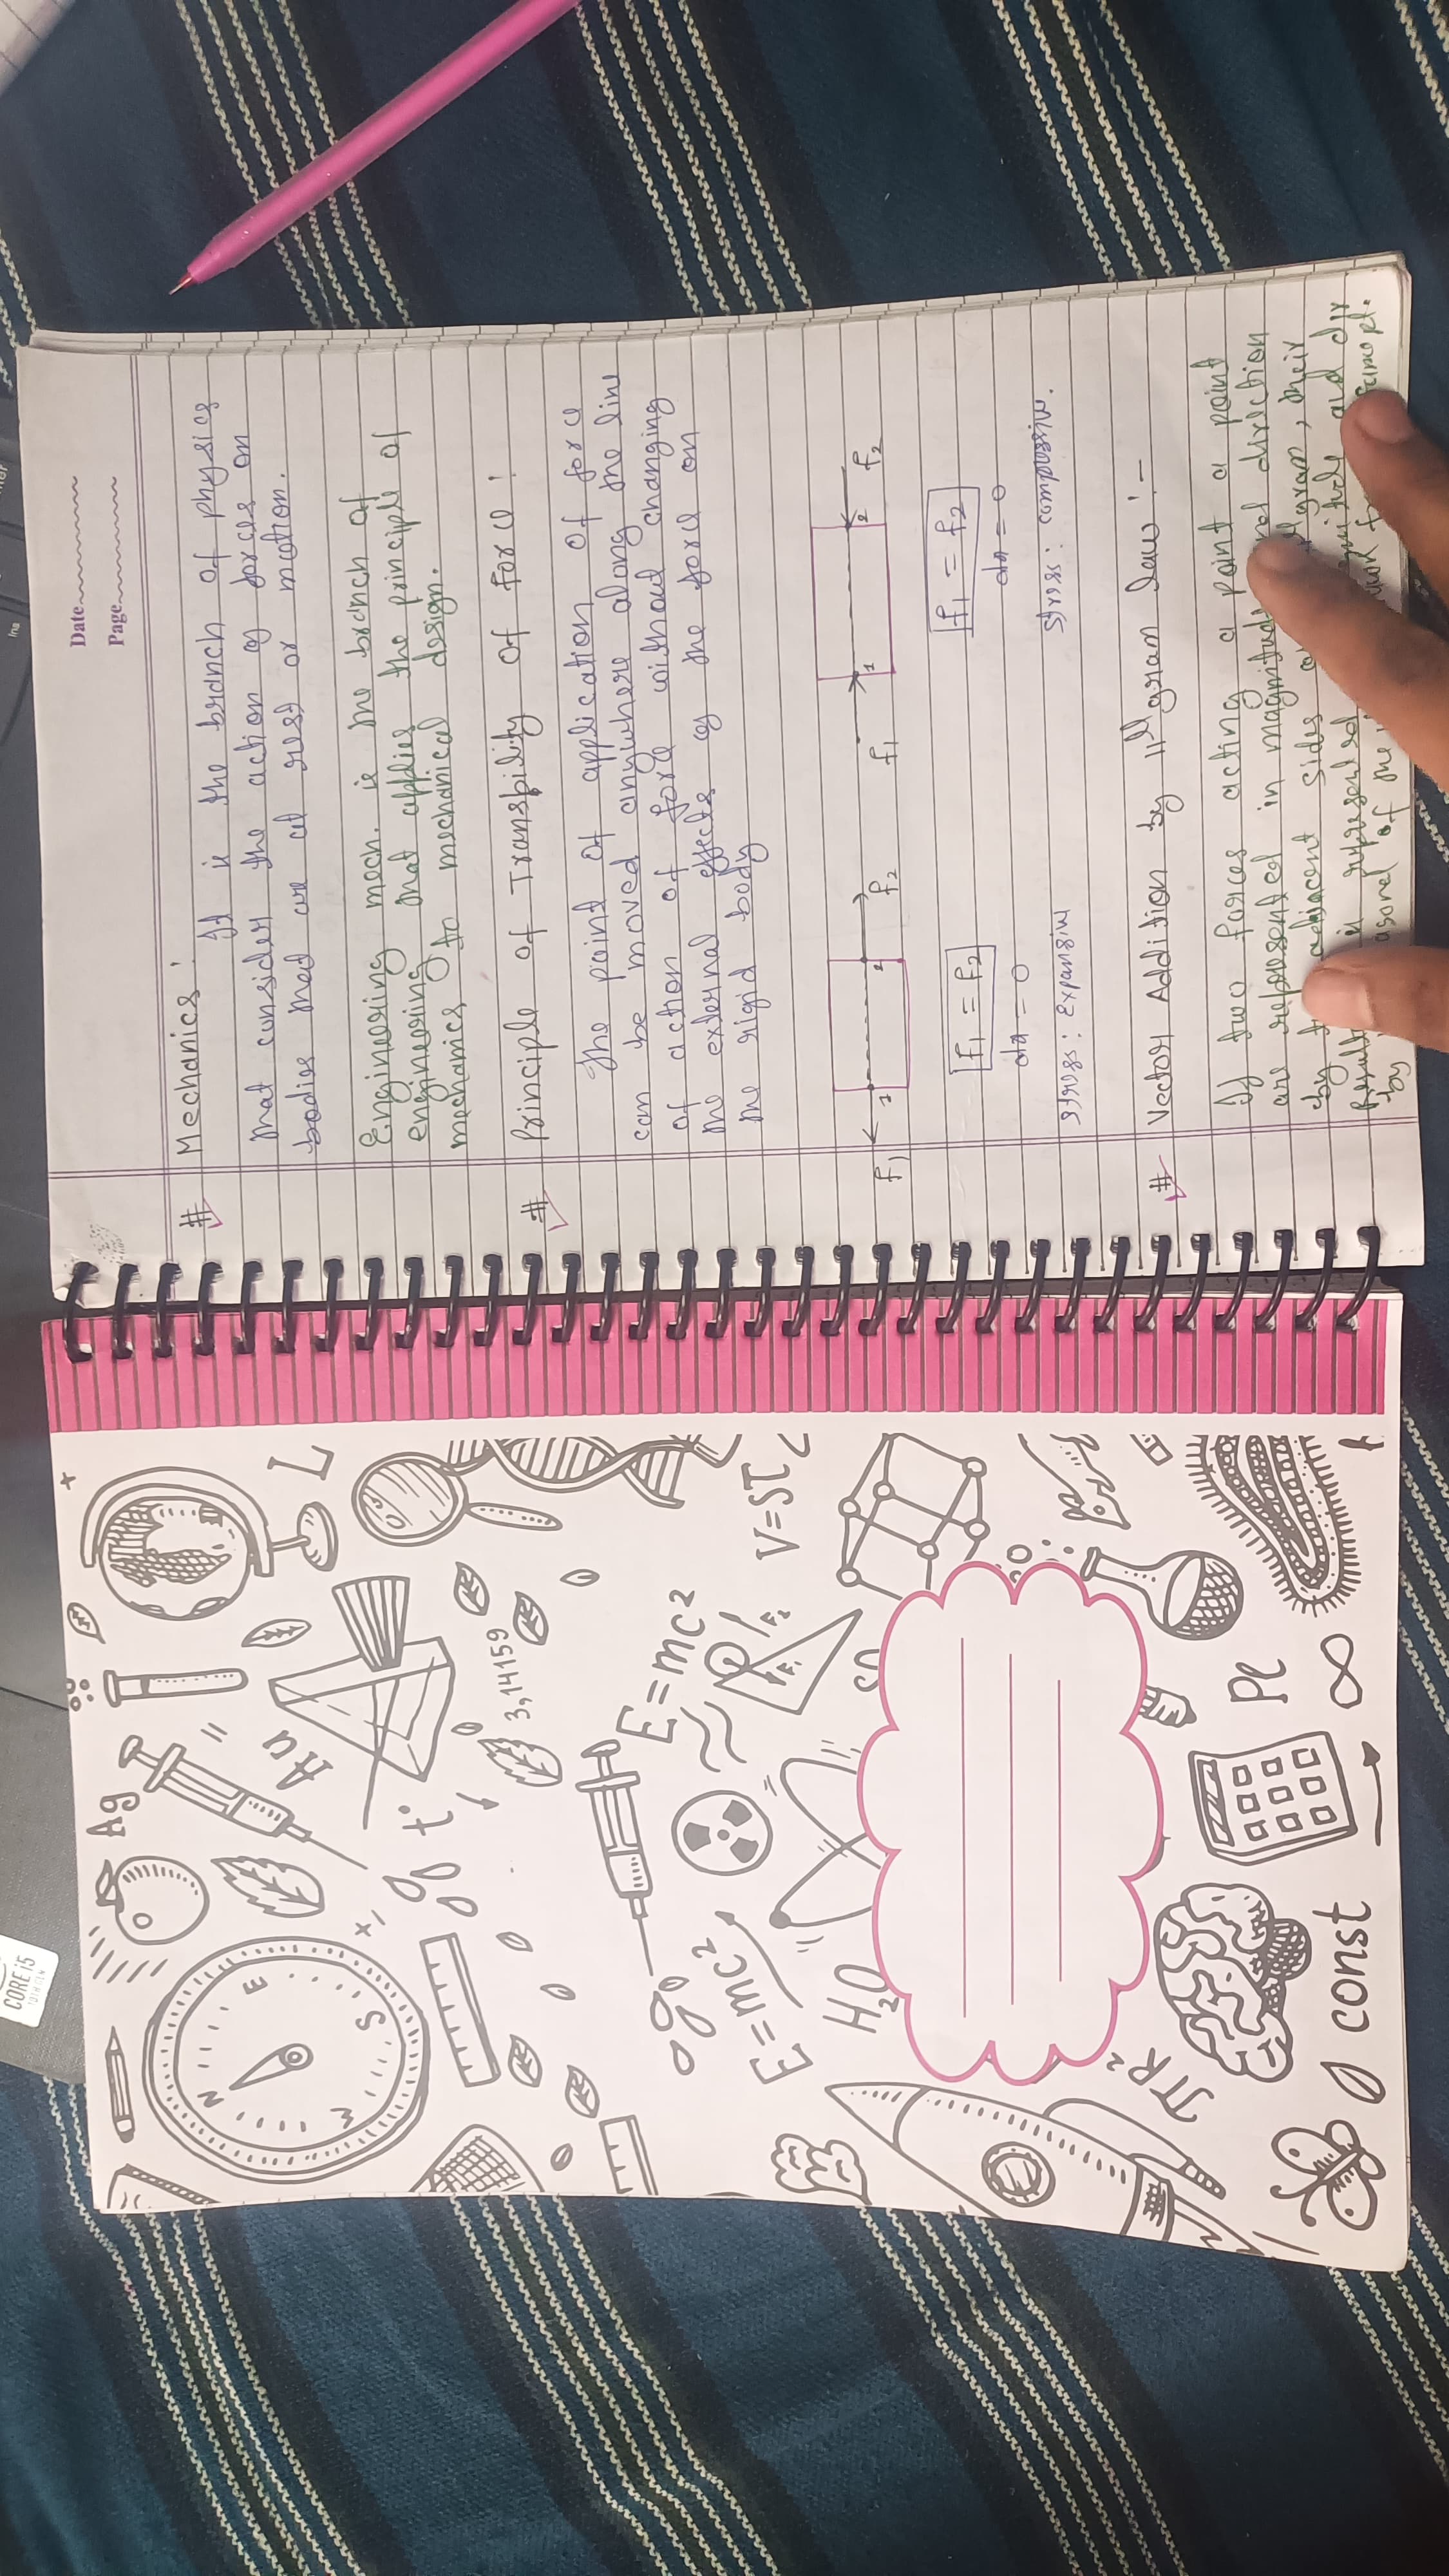 CORE i5
10TH GEN
Ins
Ag
N
E
W
S
Au
L
t°
3,14159
E=mc²
E=mc²
F₁
F₂
V=ST
H₂O
πR²
Pl
const
Date
Page
# Mechanics :
It is the branch of physics
that consider the action of forces on
bodies that are at rest or motion.
Engineering mech. is the branch of
engineering that applies the principle of
mechanics to mechanical design.
# Principle of Transpility of force :
The point of application of force
can be moved anywhere along the line
of action of force without changing
the external effects of the force on
the rigid body
F₁ 1 2 F₂ F₁ 1 2 F₂
F₁ = F₂ F₁ = F₂
da = 0 da = 0
stress : Expansive stress : compressive.
# Vector Addition by ||ᵍˡgram law :-
If two forces acting a point a point
are represented in magnitude direction
by adjacent sides gram, their
is represented and dir
by of the